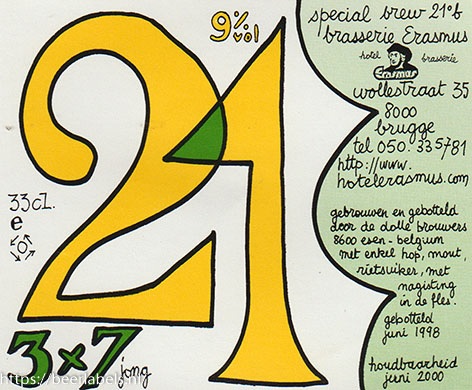 9% vol
21
33cl.
e
3x7
jong
special brew 21°b
brasserie Erasmus
hotel brasserie
Erasmus
wollestraat 35
8000
brugge
tel 050. 335781
http://www.
hotelerasmus.com
gebrouwen en gebotteld
door de dolle brouwers
8600 esen - belgium
met enkel hop, mout,
rietsuiker, met
nagisting
in de fles.
gebotteld
juni 1998
houdbaarheid
juni 2000
https://beerlabels.nl